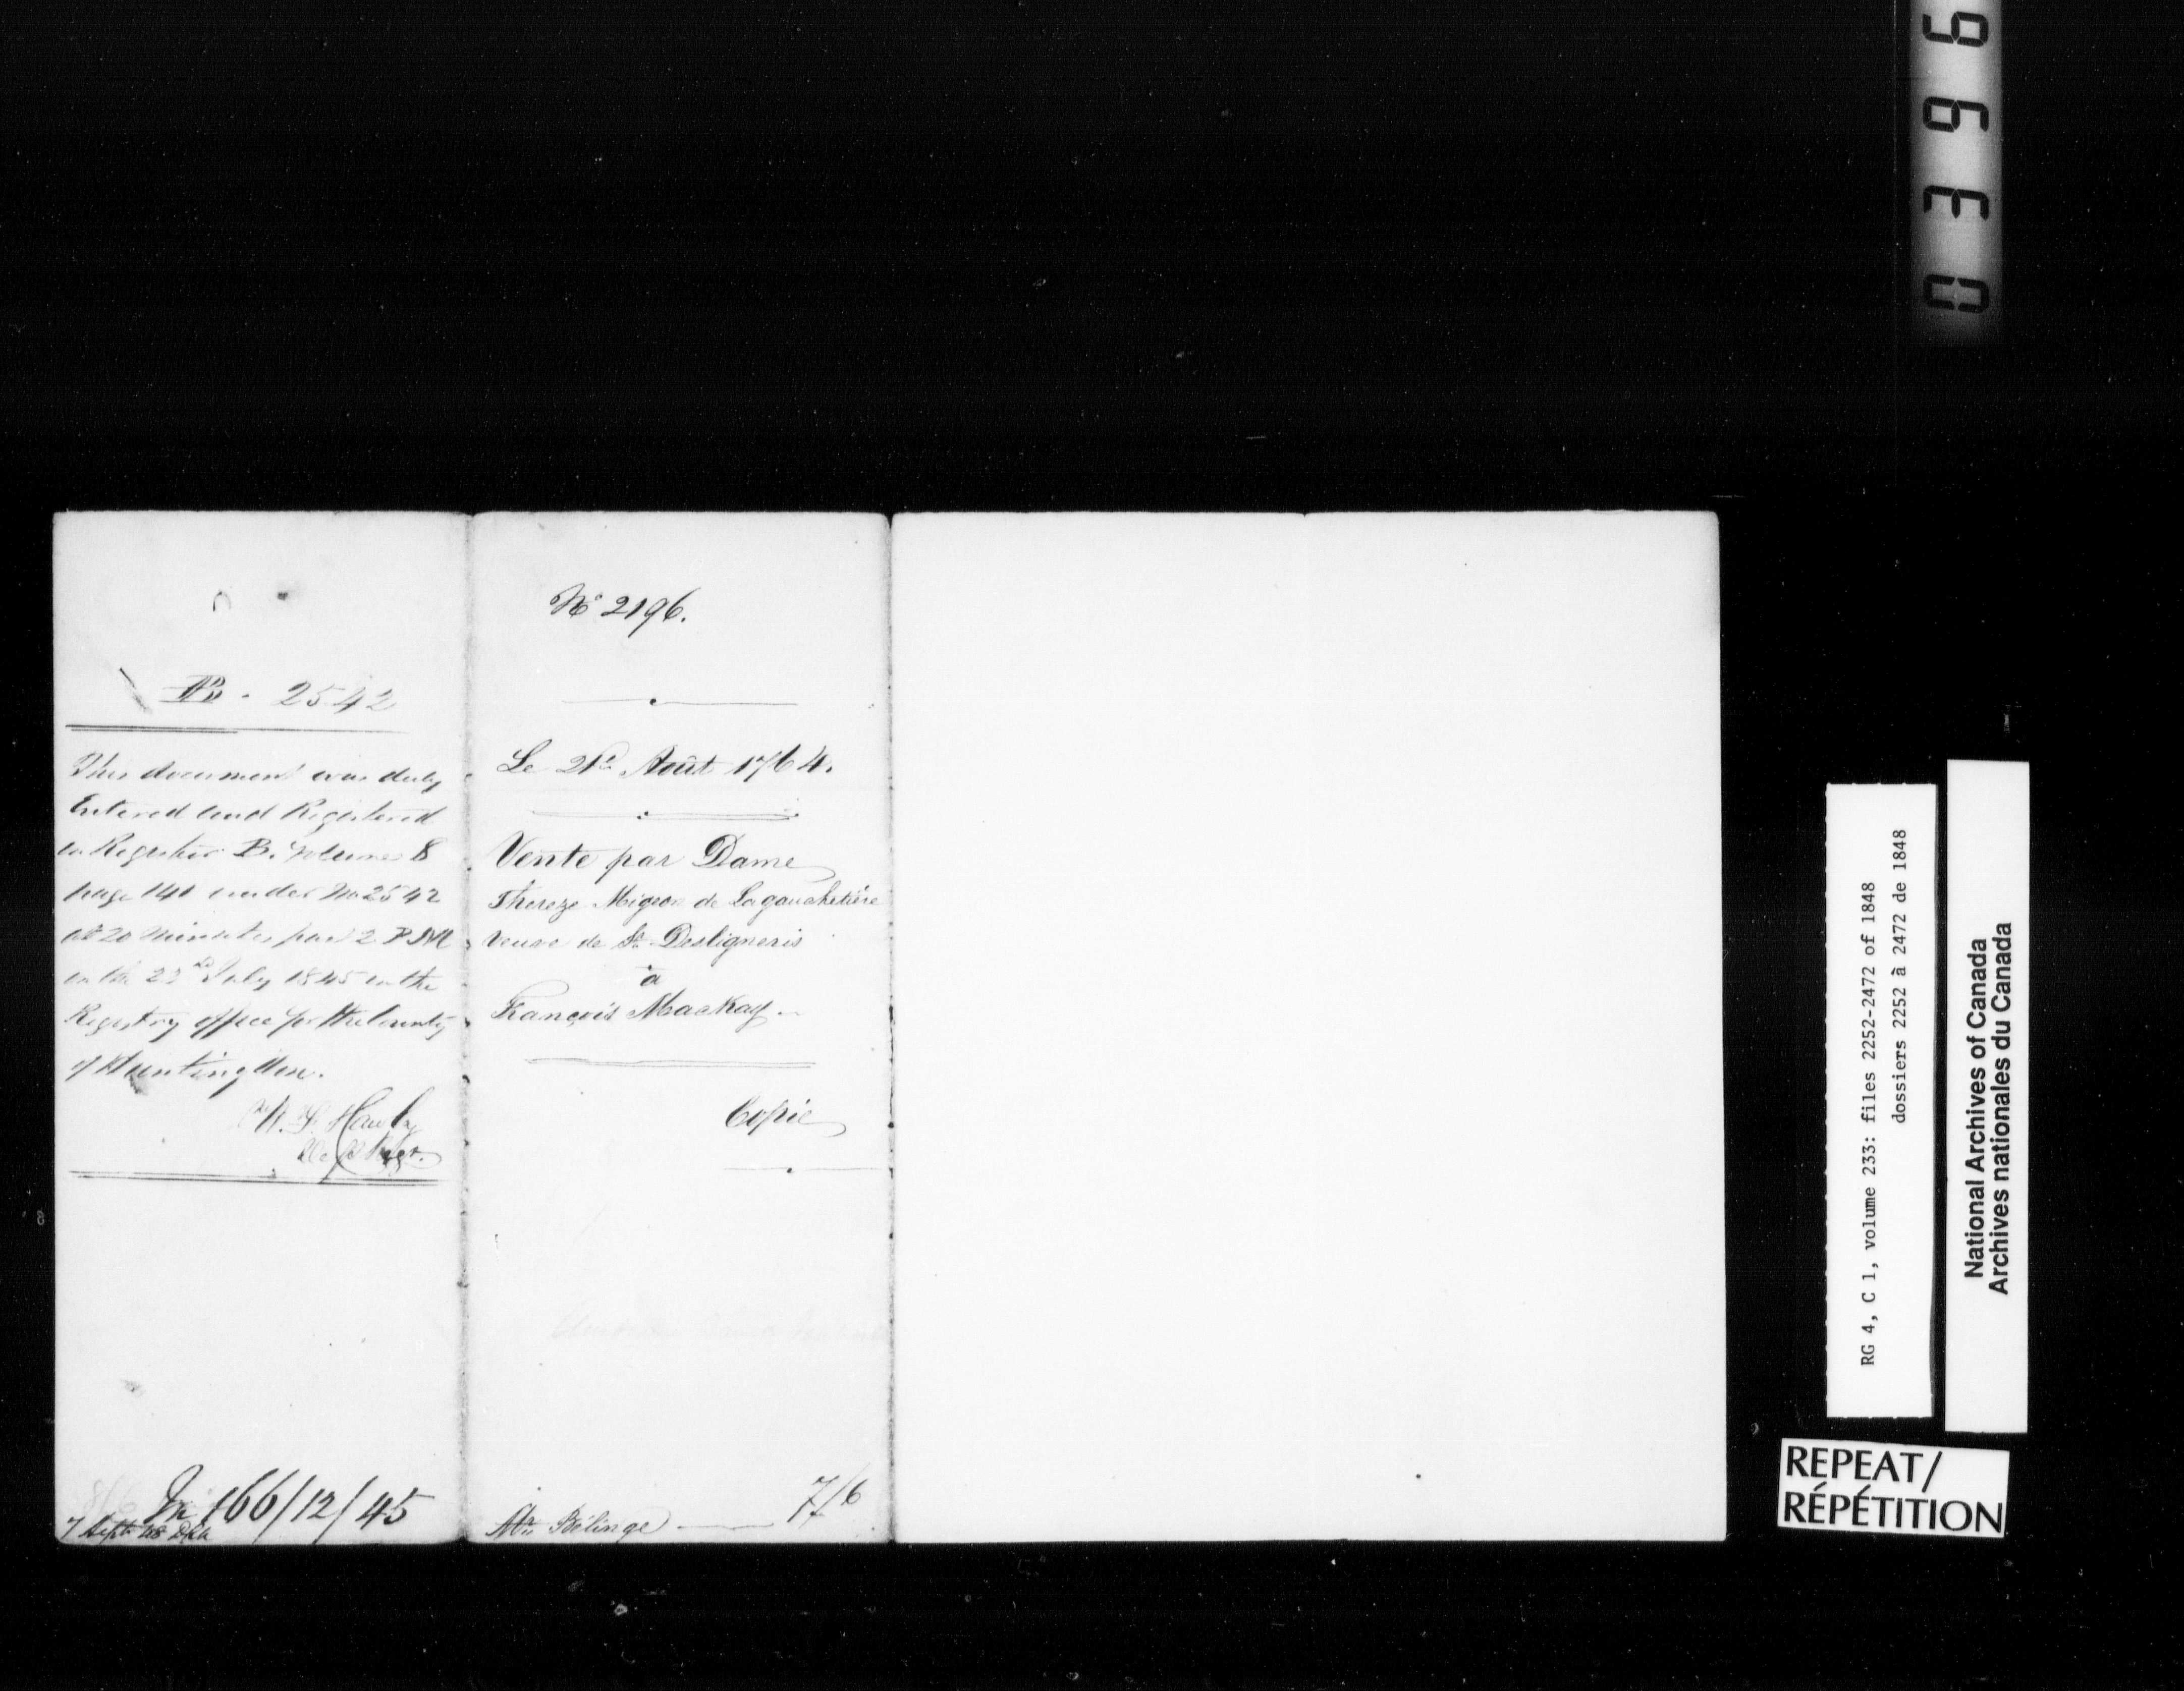 B - 2542
This document was duly
Entered and Registered
in Register B. Volume 8
page 141 under No 2542
at 20 Minutes past 2 P M
on the 22nd July 1845 in the
Registry office for the County
of Huntingdon.
7 Sept 48
166/12/45
No 2196.
Le 21e Août 1764.
Vente par Dame
Thereze Migeon de Lagauchetière
Veuve de Sr Desligneris
à
François Mackay
Copie
Mr Bélinge — 7/6
0396
RG 4, C 1, volume 233: files 2252-2472 of 1848
dossiers 2252 à 2472 de 1848
National Archives of Canada
Archives nationales du Canada
REPEAT/
RÉPÉTITION